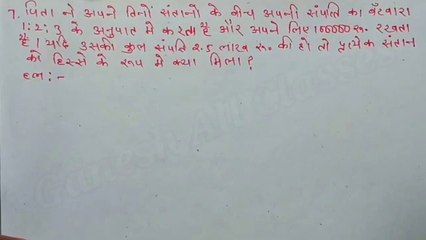 7. पिता ने अपने तिनों संतानों के बीच अपनी संपत्ति का बँटवारा
1:2:3 के अनुपात में करता है और अपने लिए 100000 रू० रखता
है । यदि उसकी कुल संपति 2.5 लाख रू० की हो तो प्रत्येक संतान
को हिस्से के रूप मे क्या मिला ?
हल :-